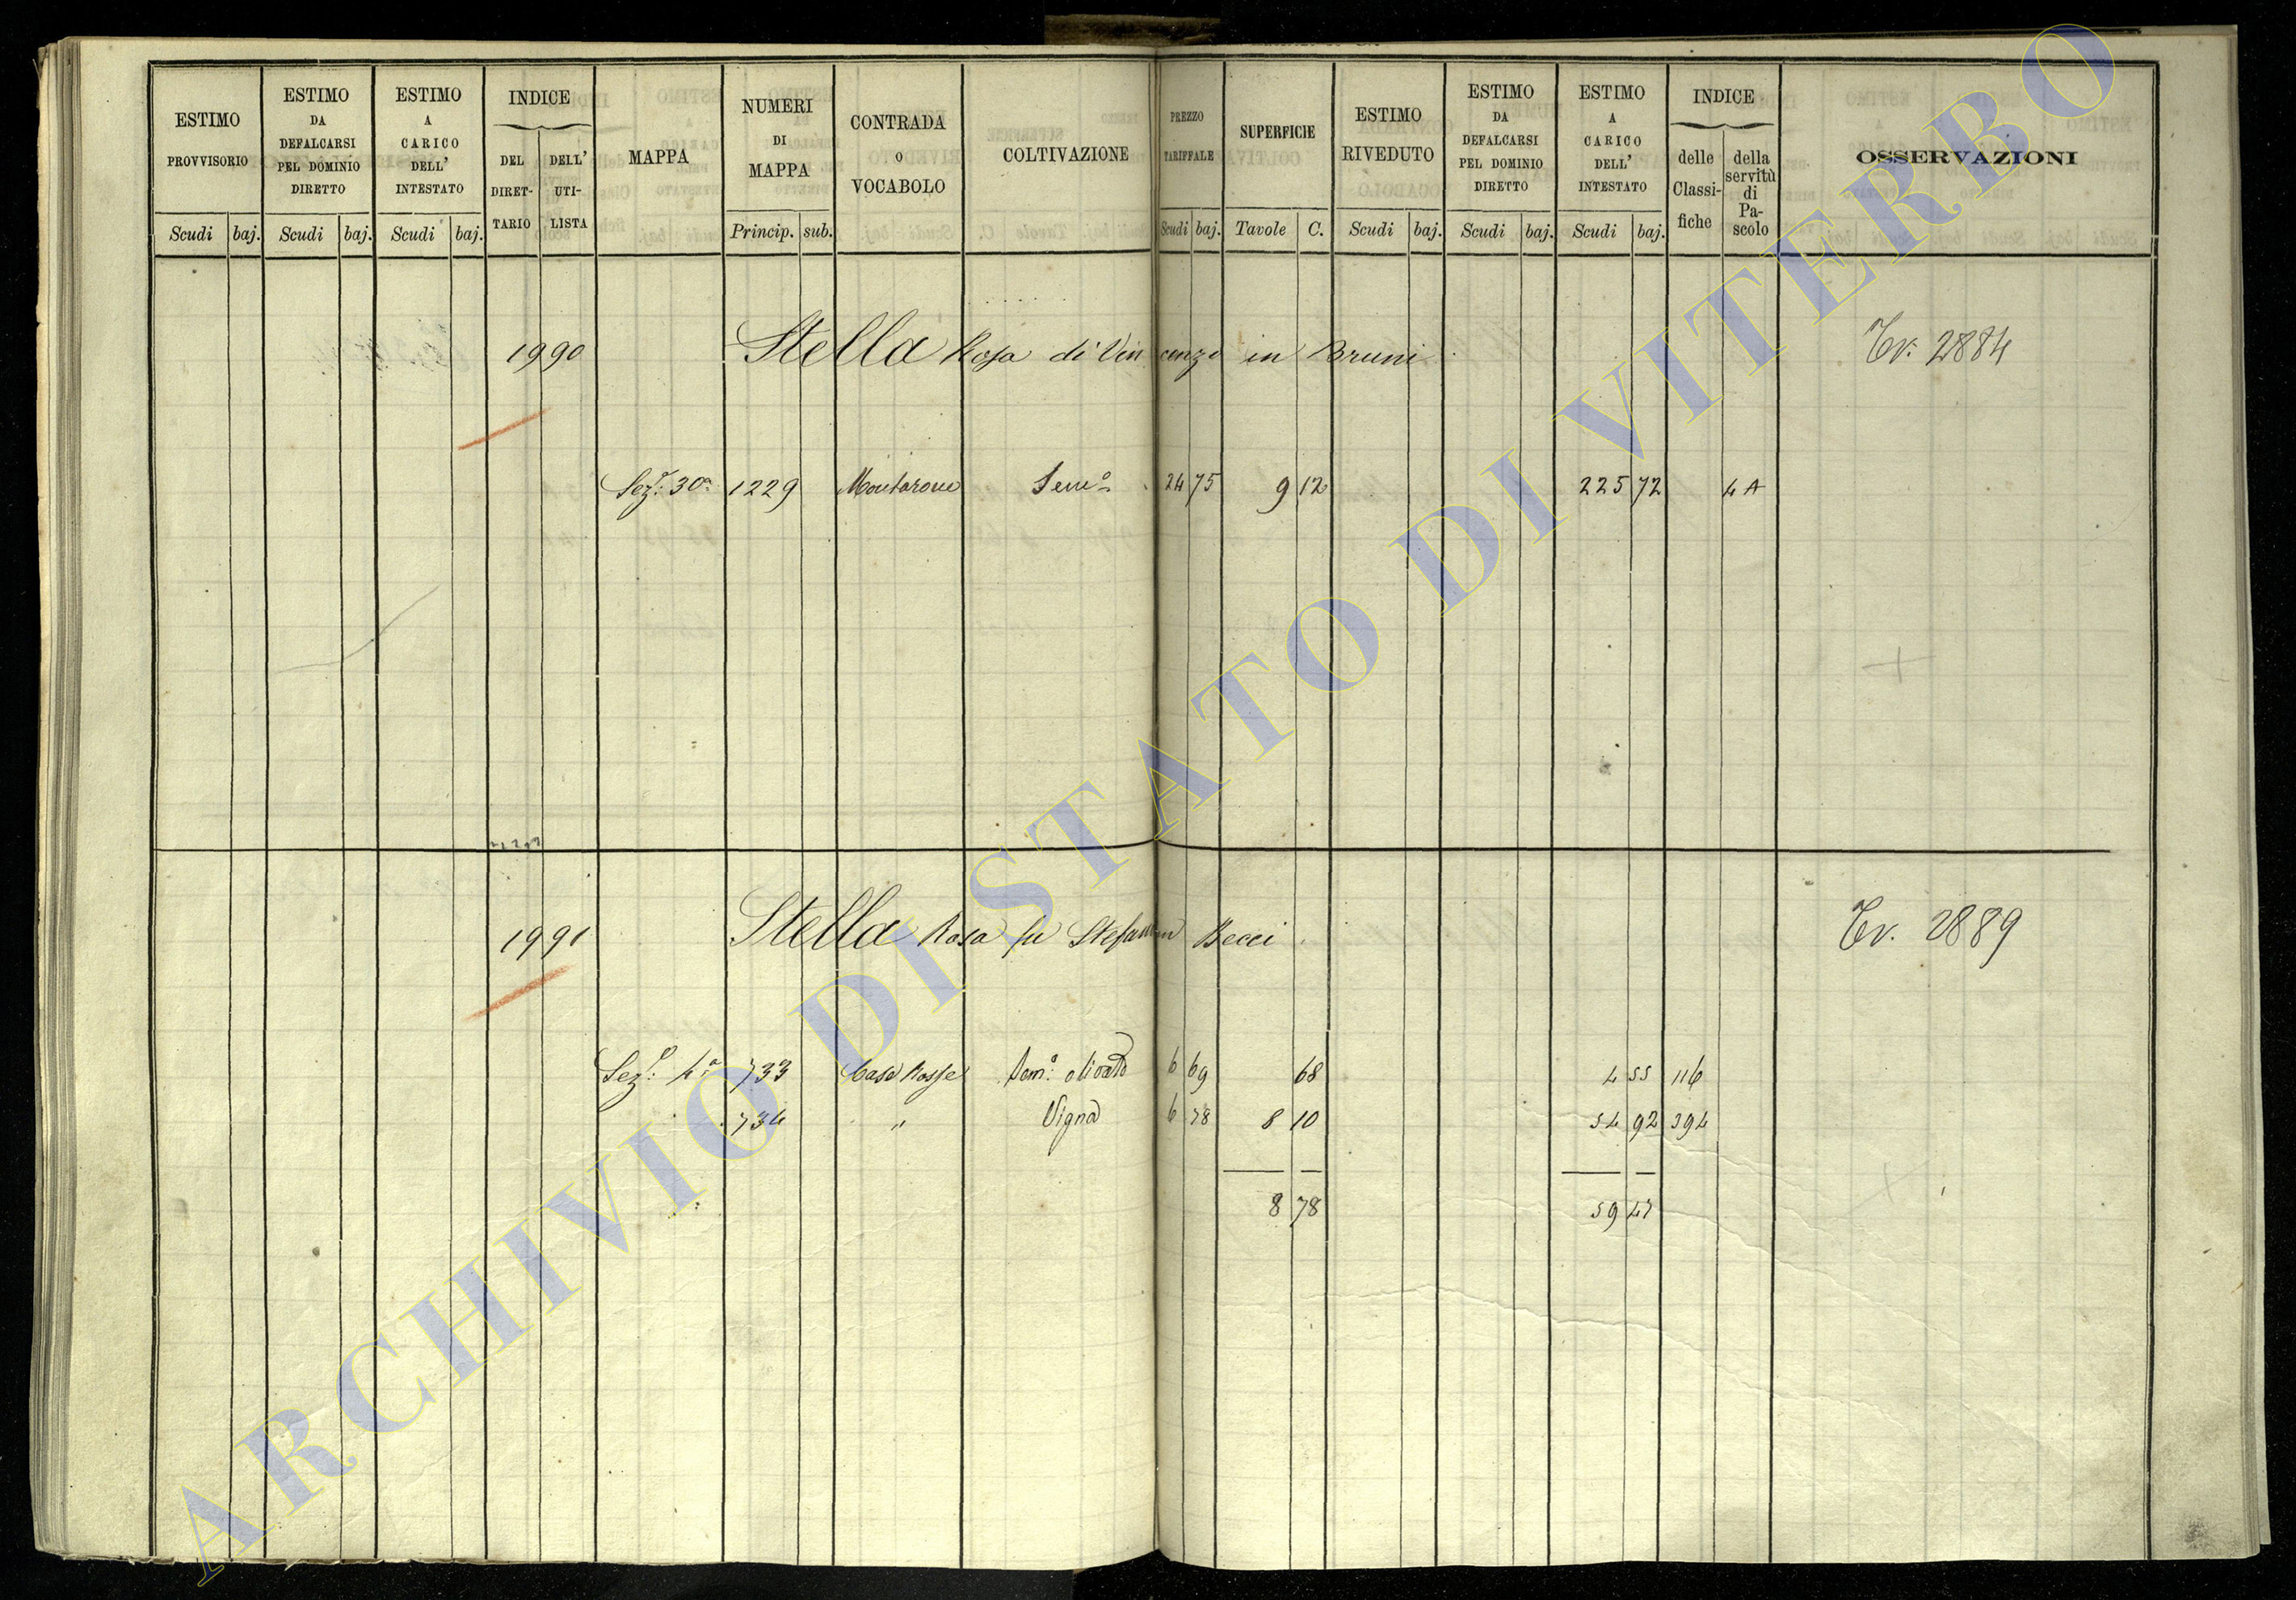 ESTIMO PROVVISORIO
Scudi baj.
ESTIMO DA DEFALCARSI PEL DOMINIO DIRETTO
Scudi baj.
ESTIMO A CARICO DELL' INTESTATO
Scudi baj.
INDICE
DEL DIRET-TARIO
DELL' UTI-LISTA
MAPPA
NUMERI DI MAPPA
Princip. sub.
CONTRADA O VOCABOLO
COLTIVAZIONE
PREZZO TARIFFALE
Scudi baj.
SUPERFICIE
Tavole C.
ESTIMO RIVEDUTO
Scudi baj.
ESTIMO DA DEFALCARSI PEL DOMINIO DIRETTO
Scudi baj.
ESTIMO A CARICO DELL' INTESTATO
Scudi baj.
INDICE
delle Classi-fiche
della servitù di Pa-scolo
OSSERVAZIONI
1990 Stella Rosa di Vincenzo in Bruni Tv. 2884
Sez: 30a 1229 Montarone Semo 24 75 9 12 225 72 4 A
1991 Stella Rosa fu Stefano in Becci Tv. 2889
Sez: 4a 733 Case Rosse Semo: olivato 6 69 68 4 55 116
734 " Vigna 6 78 8 10 54 92 394
8 78 59 47
ARCHIVIO DI STATO DI VITERBO